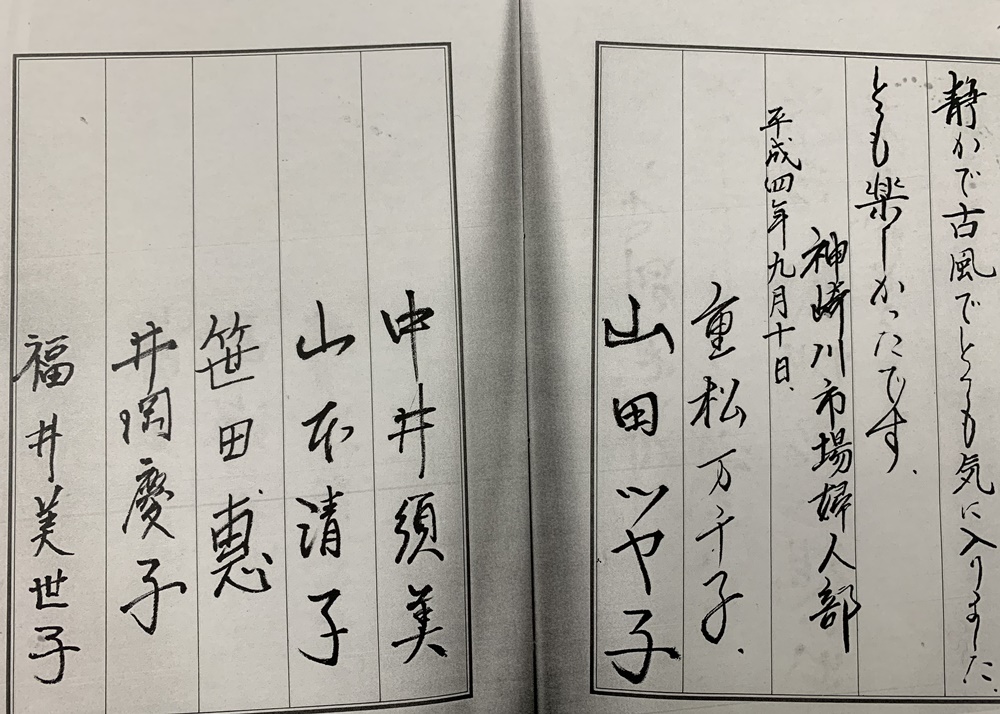 静かで古風でとても気に入りました
とても楽しかったです.
神崎川市場婦人部
平成四年九月十日.
重松万千子.
山田ツヤ子
中井須美
山本清子
笹田恵
井岡慶子
福井美世子